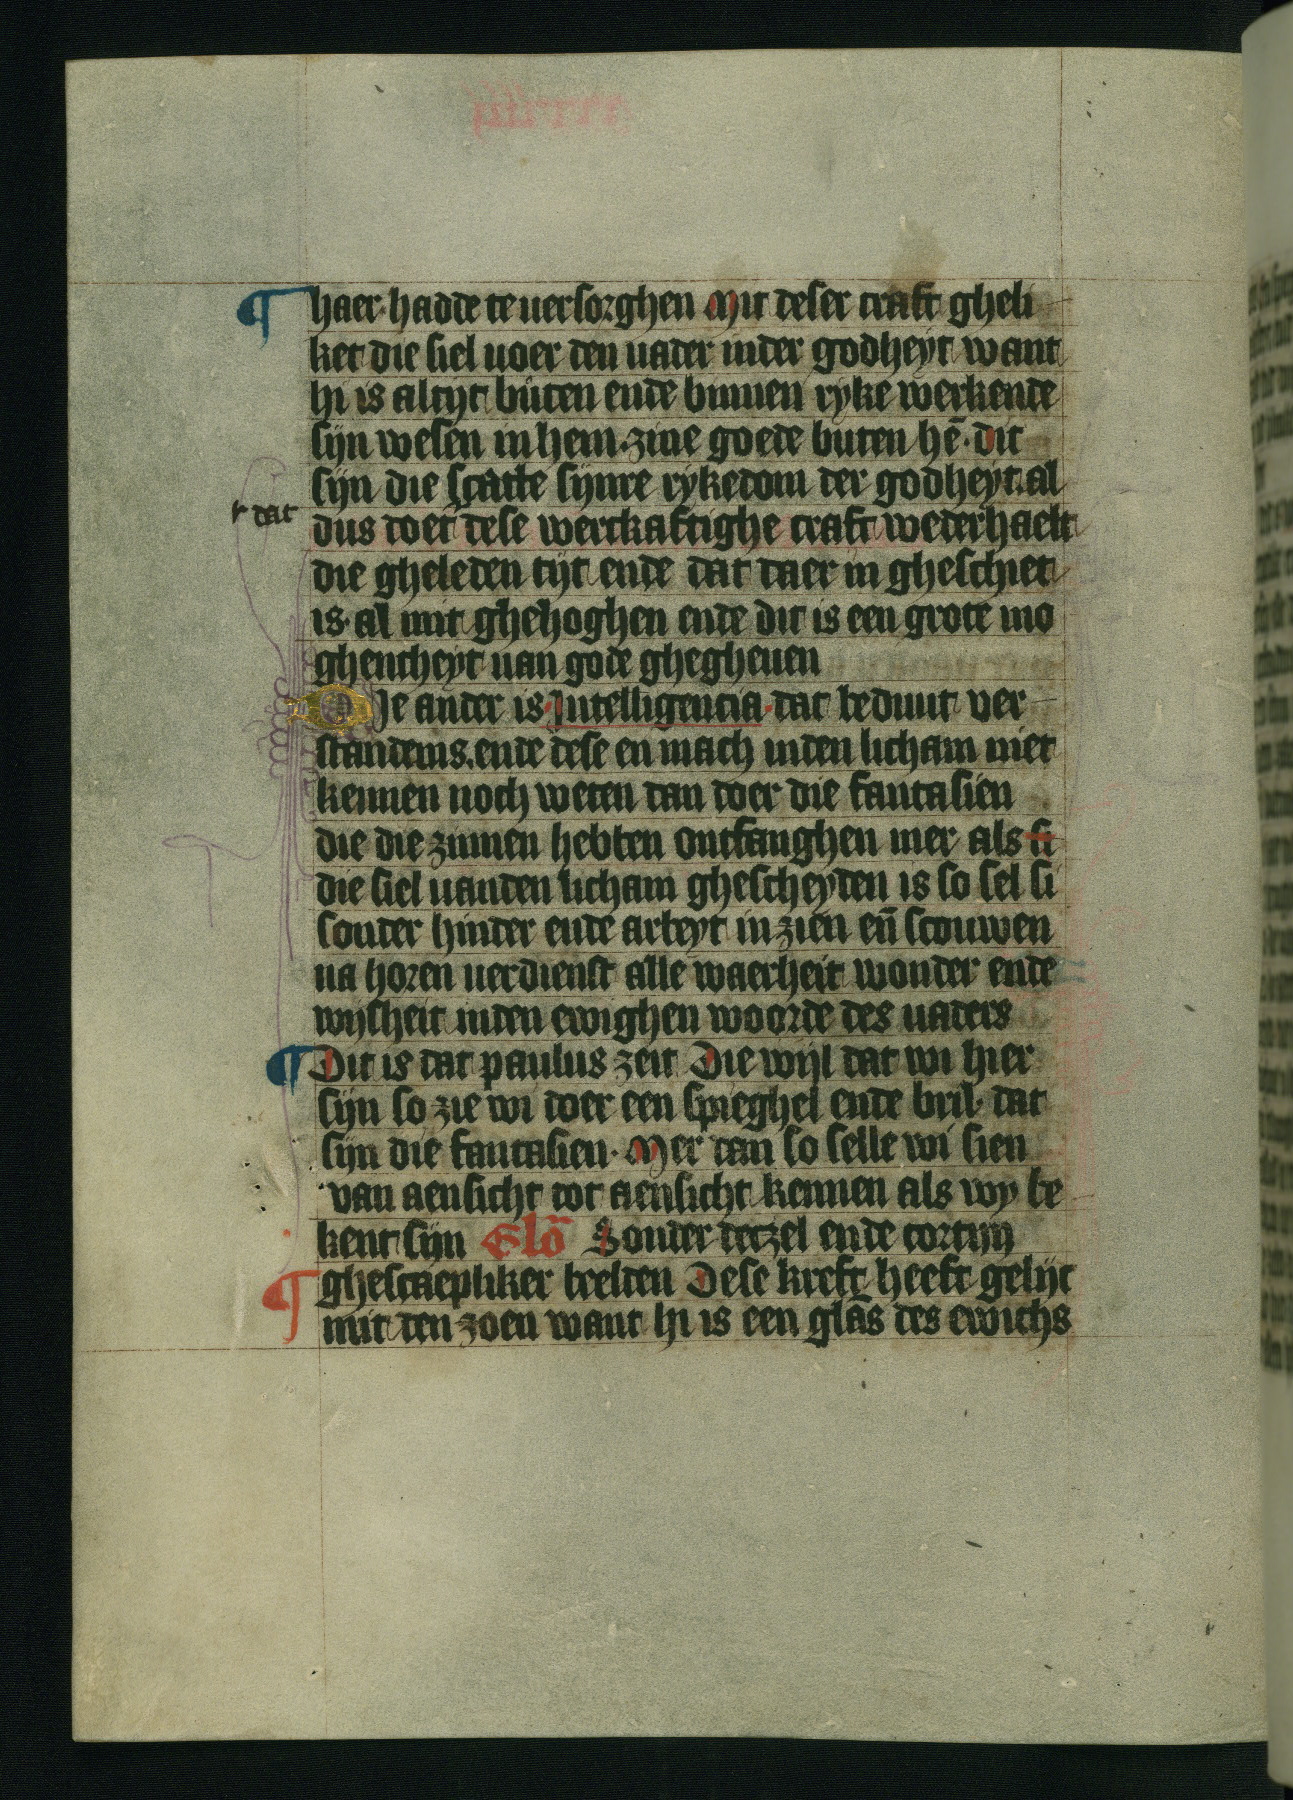 ¶ haer hadde te uersorghen Mit deser craft gheli
ket die siel uoer den uader inder godheyt want
hi is altijt buten ende binnen ryke werkende
sijn wesen in hem. zine goede buten hē. dit
sijn die scatte sijnre rykedom der godheyt. al
dat
dus doet dese werckaftighe craft wederhaelt
die gheleden tijt ende dat daer in gheschiet
is. al mit ghehoghen ende dit is een grote mo
ghentheyt uan gode ghegheuen
Die ander is Intelligencia. dat beduut ver
standenis. ende dese en mach inden licham niet
kennen noch weten dan doer die fantasien
die die zinnen hebben ontfanghen mer als si
die siel uanden licham ghescheyden is so sel si
sonder hinder ende arbeyt in zien eñ scouwen
na horen uerdienst alle waerheit wonder ende
wijsheit inden ewighen woorde des uaders
¶ Dit is dat paulus zeit Die wijl dat wi hier
sijn so zie wi doer een spieghel ende bril. dat
sijn die fantasien. Mer dan so selle wi sien
van aensicht tot aensicht kennen als wy be
kent sijn Glō Sonder deczel ende cortijn
¶ ghescaepliker beelden Dese kreft heeft gelijc
mit den zoen want hi is een glās des ewichs